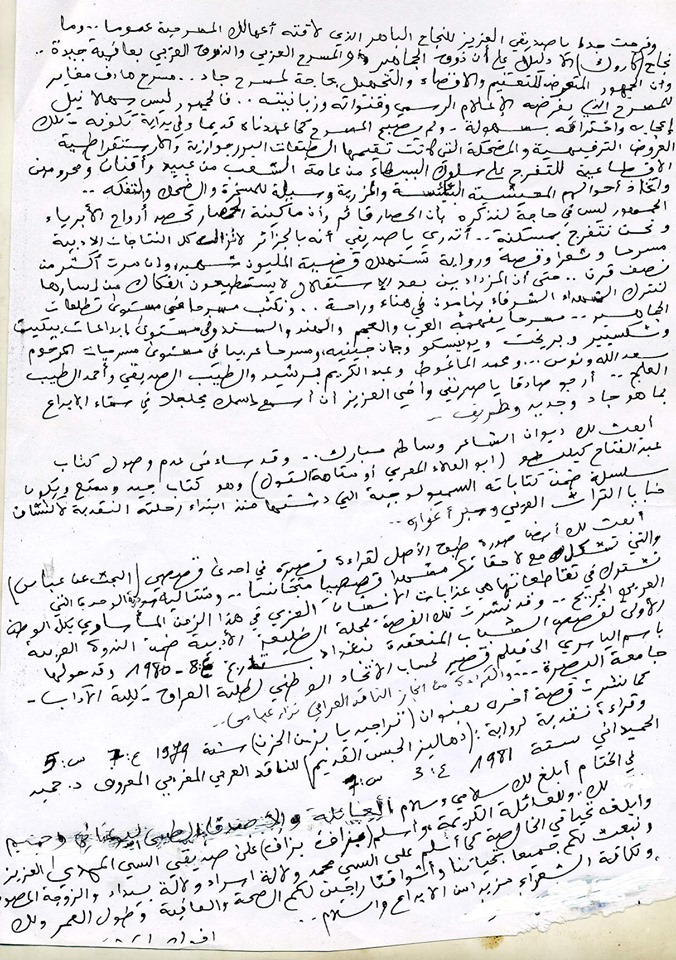 وفرحت جدا يا صديقي العزيز للنجاح الباهر الذي لاقته أعمالك المسرحية عموما.. وما
نجاح (كاروك) إلا دليل على أن ذوق الجماهير والمسرح العربي والذوق العربي بعافية جيدة..
وأن الجمهور المتعرض للتعتيم والإقصاء والتجهيل بحاجة لمسرح جاد.. مسرح هادف مغاير
للمسرح الذي يفرضه الإعلام الرسمي وقنواته وزبانيته.. فالجمهور ليس سهلا نيل
إعجابه واختراقه بسهولة - ولم يصبح المسرح كما عهدناه قديما وفي بداية تكونه - تلك
العروض الترفيهية والمضحكة التي كانت تقيمها الطبقات البورجوازية والارستقراطية
الاقطاعية للتفرج على سلوك البسطاء من عامة الشعب من عبيد وأقنان ومحرومين
واتخاذ أحوالهم المعيشية التعيسة والمزرية وسيلة للسخرة والضحك والتفكه..
الجمهور ليس في حاجة لنذكره بأن الحصار قائم وأن ماكينة الحصار تحصد أرواح الأبرياء
ونحن نتفرج بمسكنة.. أتدري يا صديقي أنه بالجزائر لازالت كل النتاجات الأدبية
مسرحا وشعرا وقصة ورواية تستهلك قضية المليون شهيد، وإن مرت أكثر من
نصف قرن.. حتى أن المزدادين بعد الاستقلال لا يستطيعون الفكاك من إسارها
لنترك الشهداء الشرفاء ينامون في هناء وراحة.. ونكتب مسرحا في مستوى تطلعات
الجماهير.. مسرحا يفهمه العرب والعجم والهند والسند وفي مستوى إبداعات بيكيت
وشكسبير وبريخت ويونيسكو وجان جينيه، ومسرحا عربيا في مستوى مسرحيات المرحوم
سعد الله ونوس... ومحمد الماغوط وعبد الكريم برشيد والطيب الصديقي وأحمد الطيب
العلج.. أرجو صادقا يا صديقي وأخي العزيز أن أسمع باسمك مجلجلا في سماء الإبداع
بما هو جاد وجديد وطريف..
أبعث لك ديوان الشاعر وسالم مبارك.. وقد ساءني عدم وصول كتاب
عبد الفتاح كيليطو (أبو العلاء المعري أو متاهات القول) وهو كتاب جيد وممتع ويكون
سلسلة ضمن كتاباته السميولوجية التي دشنها منذ ابتداء رحلته النقدية لاكتشاف
خبايا التراث العربي وسبر أغواره..
أبعث لك أيضا صورة طبق الأصل لقراءة قصيرة في إحدى قصصي (البحث عن عباس)
والتي تشكل مع لاحقاتها مشهدا قصصيا متجانسا.. ومتتالية
تشترك في تقاطعاتها هي عذابات الإنسان العربي في هذا الزمن المأساوي بكل الوطن
العربي الجريح.. وقد نشرت تلك القصة بمجلة الطليعة الأدبية ضمن الندوة العربية
الأولى لقصص الشباب المنعقدة ببغداد ع: 8 - 1980 وقد حولها
باسم الياسري إلى فيلم قصير لحساب الاتحاد الوطني لطلبة العراق - كلية الآداب -
جامعة البصرة... والقراءة من إنجاز الناقد العراقي نزار عباس..
كما نشرت قصة أخرى بعنوان (تراجيديا بزمن الحزن) سنة 1979 ع: 7 س: 5
وقراءة نقدية لرواية: (دهاليز الحبس القديم) للناقد العربي المغربي المعروف د. حميد
الحميداني سنة 1981 ع: 3 س: 7
في الختام أبلغ لك سلامي وسلام العائلة والأصدقاء
لك وللعائلة الكريمة، وأسلم (بزاف بزاف) على صديقي السي المهدي العزيز
وأبلغه تحياتي الخالصة كما أسلم على السي محمد ولالة اسراء ولالة سيداء والزوجة المصون
ونبعث لكم جميعا بتحياتنا وأشواقنا راجين لكم الصحة والعافية وطول العمر ولك
ولكافة الشعراء مزيدا من الإبداع والسلام..